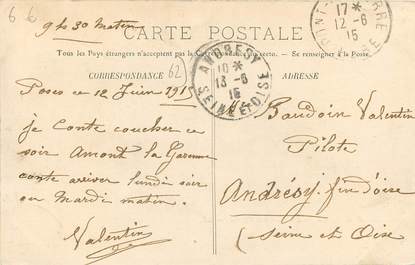 6 6
9 h 30 Matin
CARTE POSTALE
Tous les Pays étrangers n'acceptent pas la Correspondance au recto. — Se renseigner à la Poste.
CORRESPONDANCE
62
ADRESSE
Poses ce 12 Juin 1915
je Conte coucher ce
soir Amont la Garenne
conte ariver lundi soir
ou Mardi matin.
Valentin
Baudoin Valentin
Pilote
Andrésy fin d'oise
(Seine et Oise
ANDRESY
10 *
13 -6
15
SEINE-ET-OISE
17 *
12 -6
15